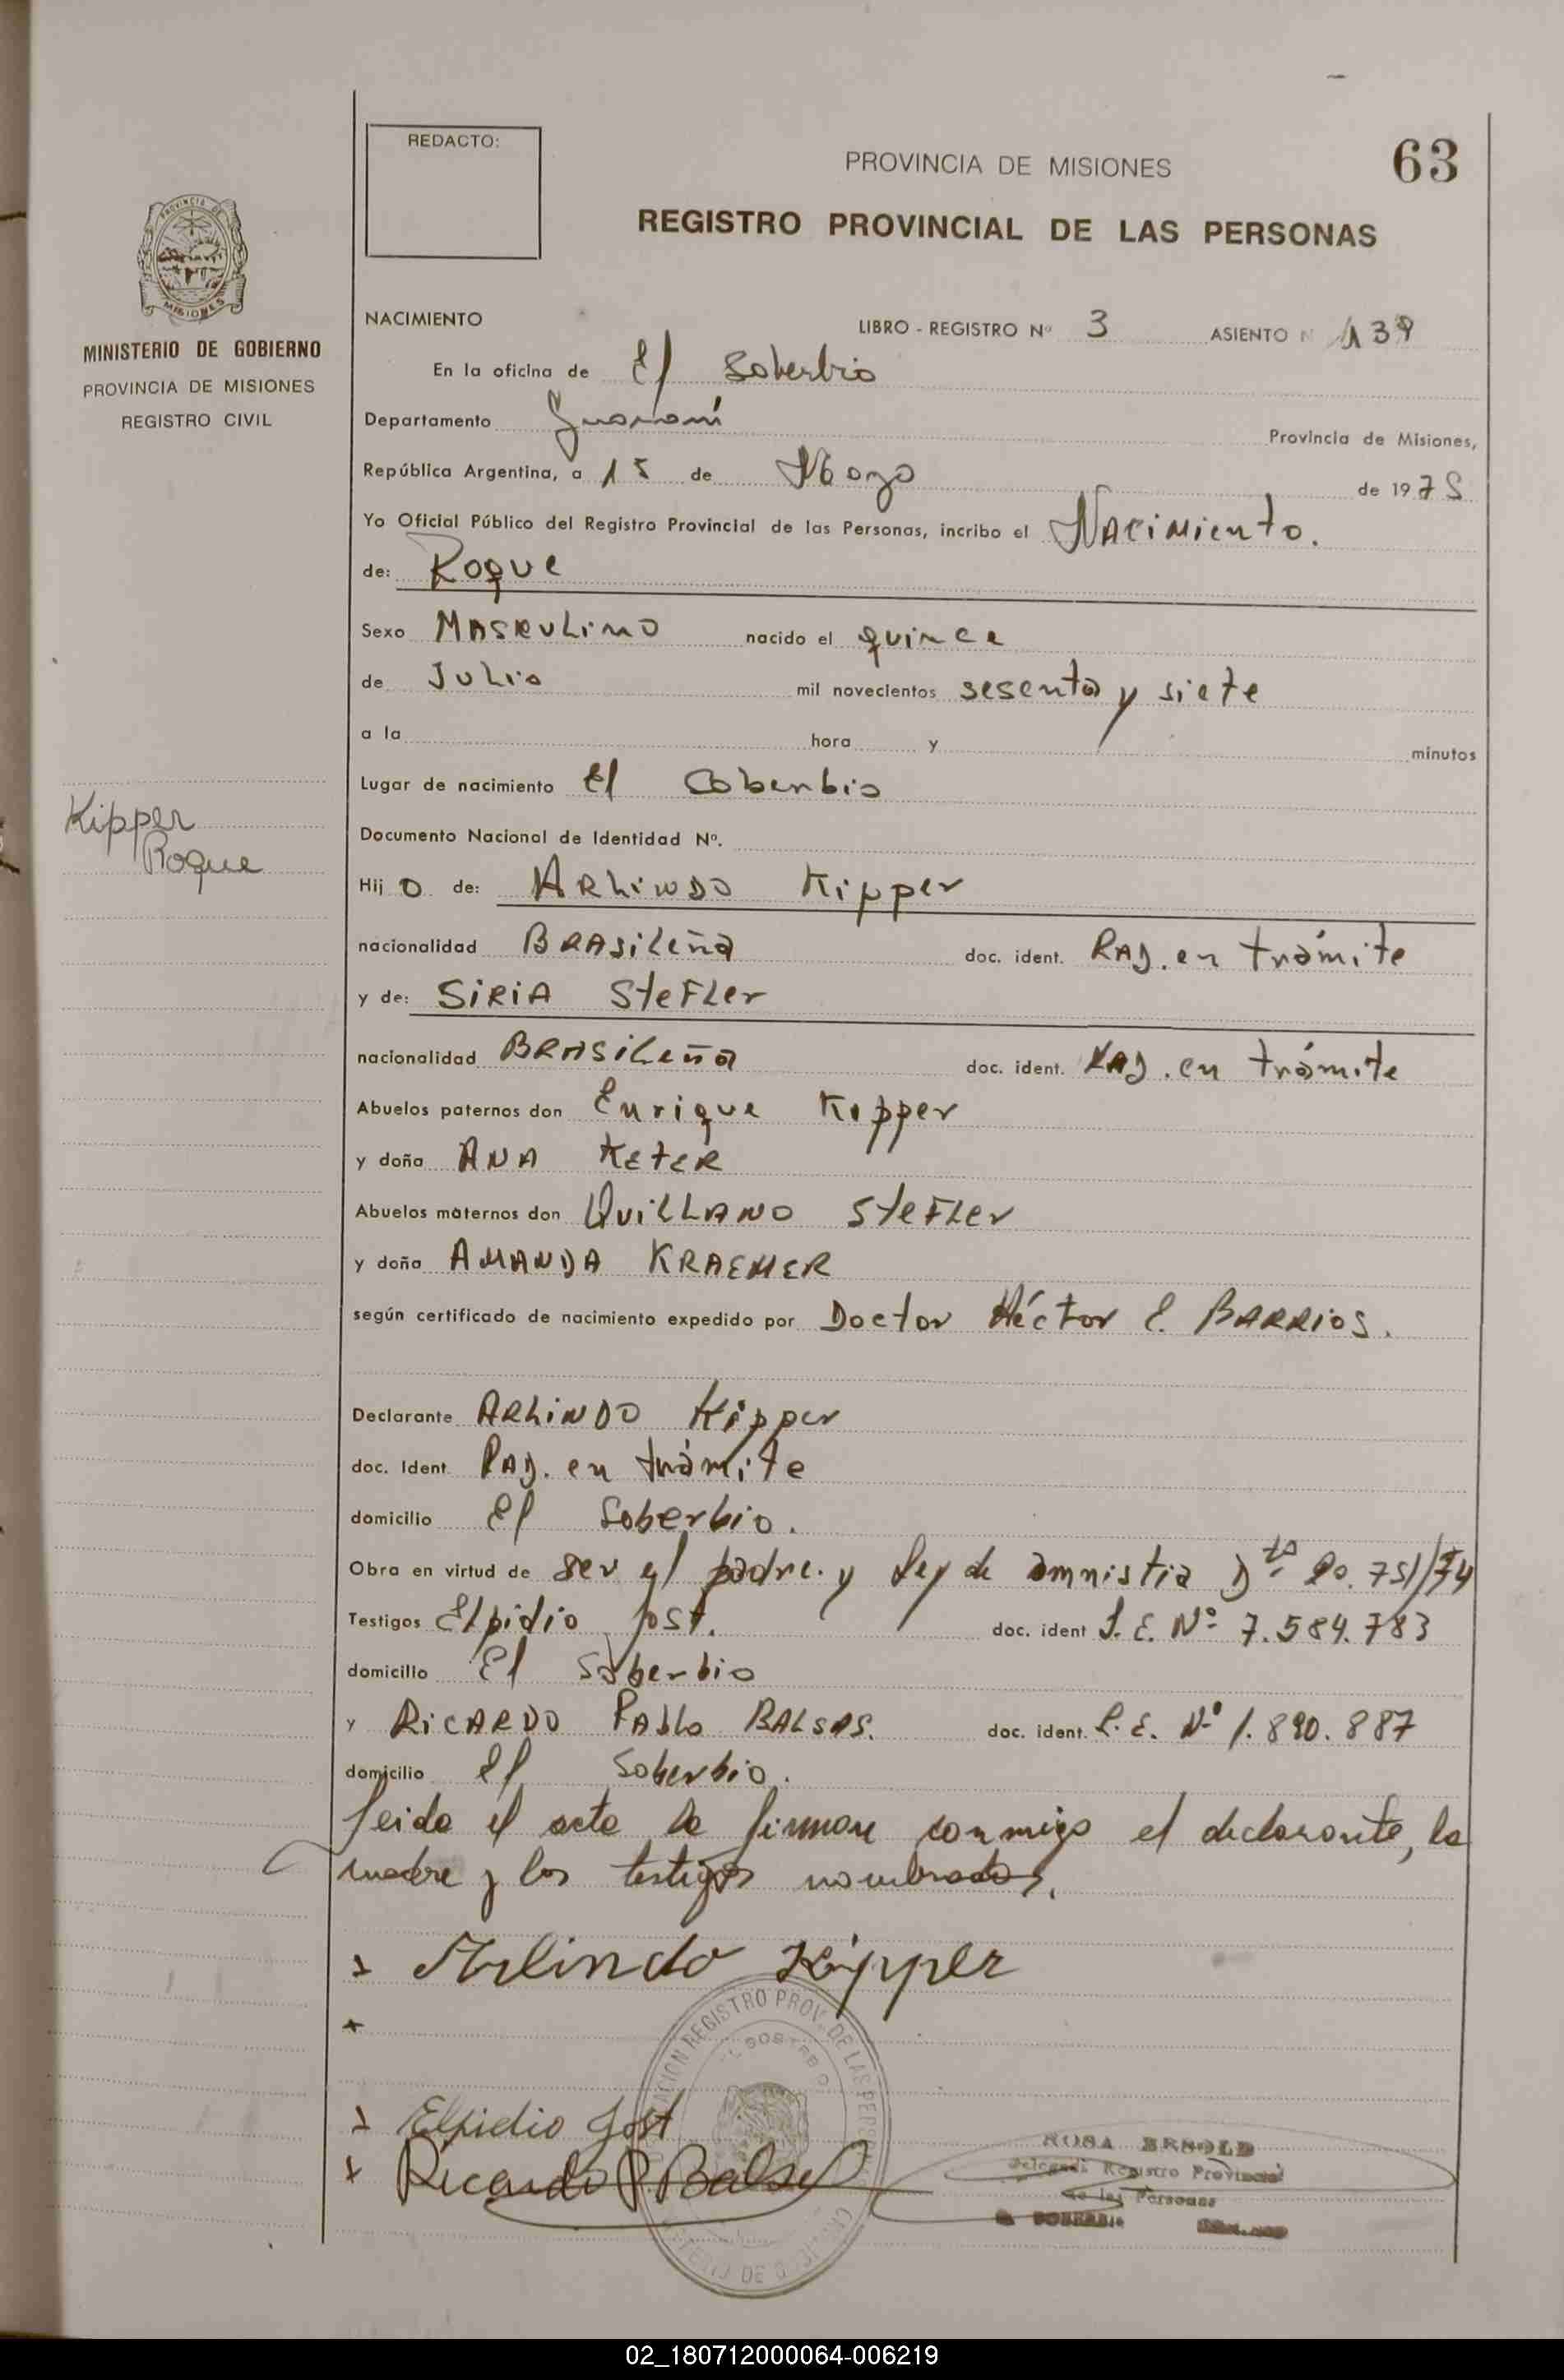 REDACTO:
PROVINCIA DE MISIONES
63
REGISTRO PROVINCIAL DE LAS PERSONAS
PROVINCIA DE
MISIONES
MINISTERIO DE GOBIERNO
PROVINCIA DE MISIONES
REGISTRO CIVIL
NACIMIENTO
LIBRO - REGISTRO Nº 3 ASIENTO N 139
En la oficina de El Soberbio
Departamento Guaraní Provincia de Misiones,
República Argentina, a 15 de Mayo de 1975
Yo Oficial Público del Registro Provincial de las Personas, incribo el Nacimiento.
de: Roque
Sexo Masculino nacido el quince
de Julio mil novecientos sesenta y siete
a la hora y minutos
Lugar de nacimiento El Soberbio
Kipper
Roque
Documento Nacional de Identidad Nº.
Hij o de: ARLINDO Kipper
nacionalidad BRASileña doc. ident. RAD. en trámite
y de: SIRIA SteFLer
nacionalidad BRASileña doc. ident. RAD. en trámite
Abuelos paternos don Enrique Kipper
y doña ANA KETER
Abuelos maternos don QUILLANO SteFLer
y doña AMANDA KRAEMER
según certificado de nacimiento expedido por Doctor Héctor E. BARRIOS.
Declarante ARLINDO Kipper
doc. Ident. RAD. en trámite
domicilio El Soberbio.
Obra en virtud de ser el padre. y Ley de amnistia Dto 20.751/74
Testigos Elpidio Jost. doc. ident L.E. Nº 7.584.783
domicilio El Soberbio
y RICARDO PABLO BALSAS. doc. ident. L.E. Nº 1.890.887
domicilio El Soberbio.
Leida el acta la firman conmigo el declarante, la
madre y los testigos nombrados.
Arlindo Kipper
Elpidio Jost
Ricardo P. Balsas
REGISTRO PROV. DE LAS PERSONAS
ROSA ERSOLD
Delegada Registro Provincial
de las Personas
EL SOBERBIO
02_180712000064-006219